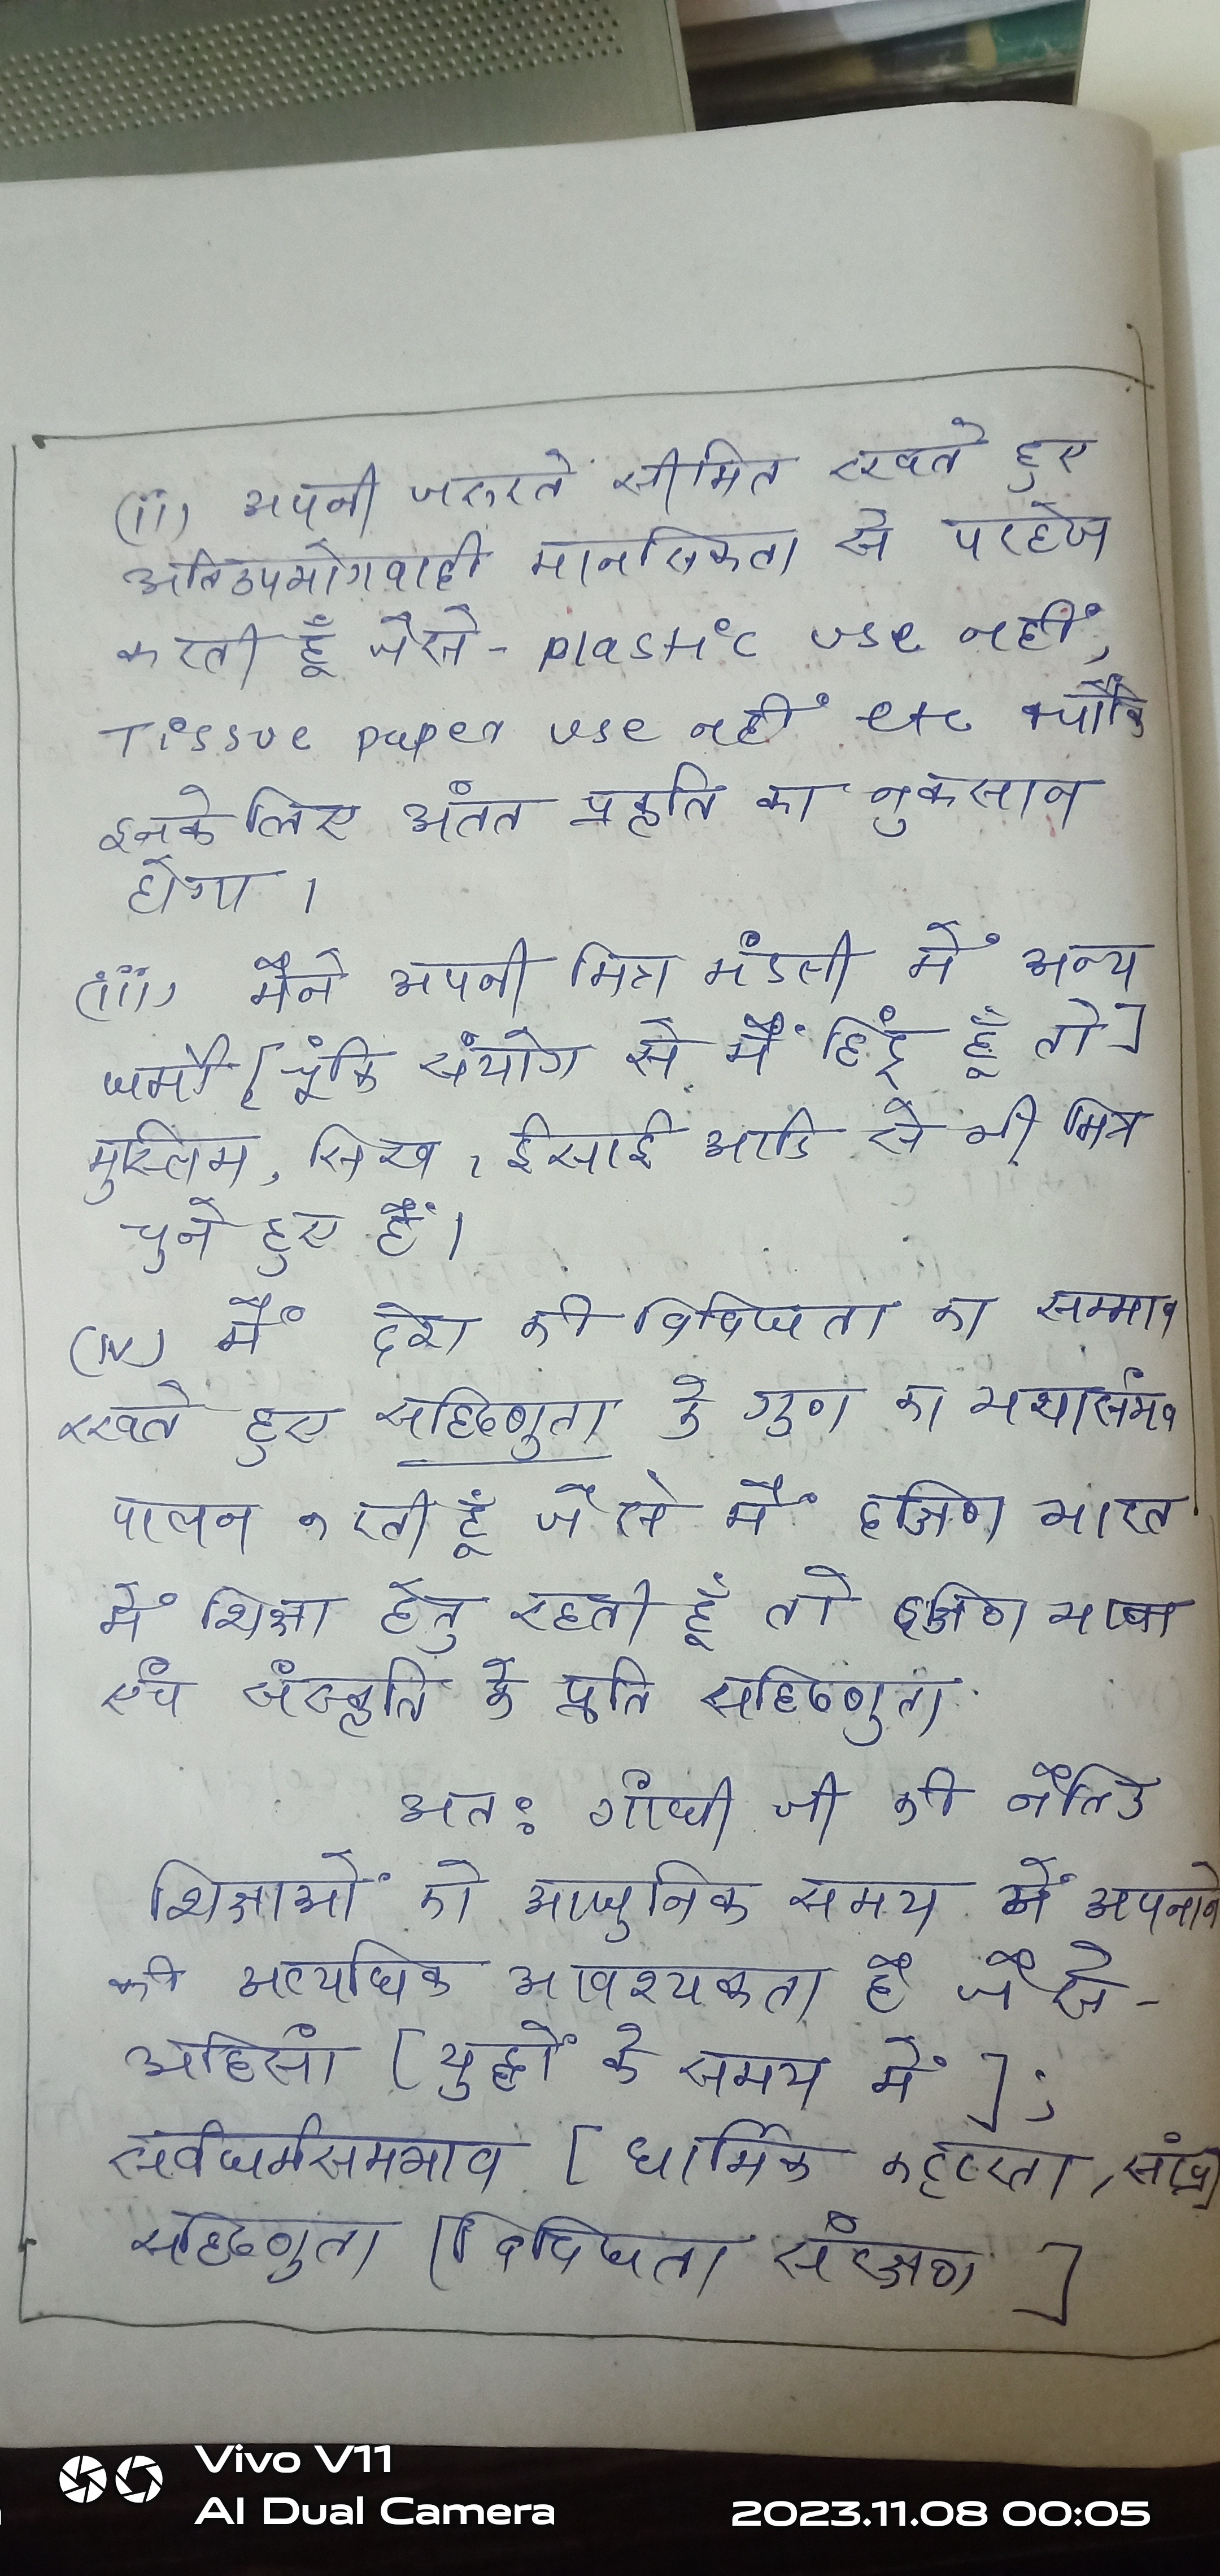 (ii) अपनी जरुरते सीमित रखते हुए
अतिउपभोगवादी मानसिकता से परहेज
करती हूँ जैसे - plastic use नहीं,
Tissue paper use नहीं etc क्योंकि
इनके लिए अंतत प्रकृति का नुकसान
होगा ।
(iii) मैंने अपनी मित्र मंडली में अन्य
धर्मों [चूंकि संयोग से मैं हिंदू हूँ तो]
मुस्लिम, सिख, ईसाई आदि से भी मित्र
चुने हुए हैं।
(iv) मैं देश की विविधता का सम्मान
रखते हुए सहिष्णुता के गुण का यथासंभव
पालन करती हूँ जैसे मैं दक्षिण भारत
में शिक्षा हेतु रहती हूँ तो दक्षिण भाषा
एंव संस्कृति के प्रति सहिष्णुता
अतः गांधी जी की नैतिक
शिक्षाओं को आधुनिक समय में अपनाने
की अत्यधिक आवश्यकता है जैसे -
अहिसां [युद्धों के समय में];
सर्वधर्मसमभाव [धार्मिक कट्टरता,
सहिष्णुता [विविधता संरक्षण]
Vivo V11
AI Dual Camera
2023.11.08 00:05